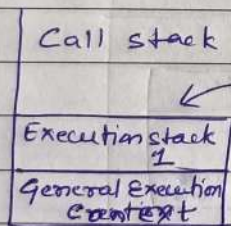 Call stack
Execution stack
1
General Execution
Context